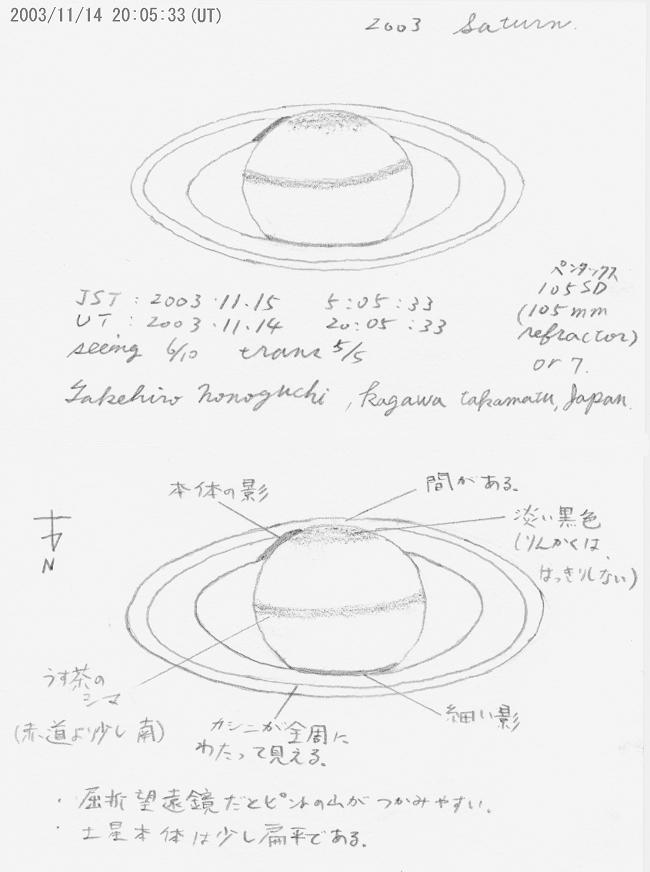 2003/11/14 20:05:33 (UT)
2003 Saturn.
JST : 2003.11.15 5:05:33
UT : 2003.11.14 20:05:33
seeing 6/10 trans 5/5
ペンタックス
105SD
(105mm
refractor)
or 7.
Takehiro Nonoguchi, Kagawa takamatu, Japan.
本体の影
間がある。
淡い黒色
(りんかくは、
はっきりしない)
N
うす茶の
シマ
(赤道より少し南)
カシニが全周に
わたって見える。
細い影
・屈折望遠鏡だとピントの山がつかみやすい。
・土星本体は少し扁平である。